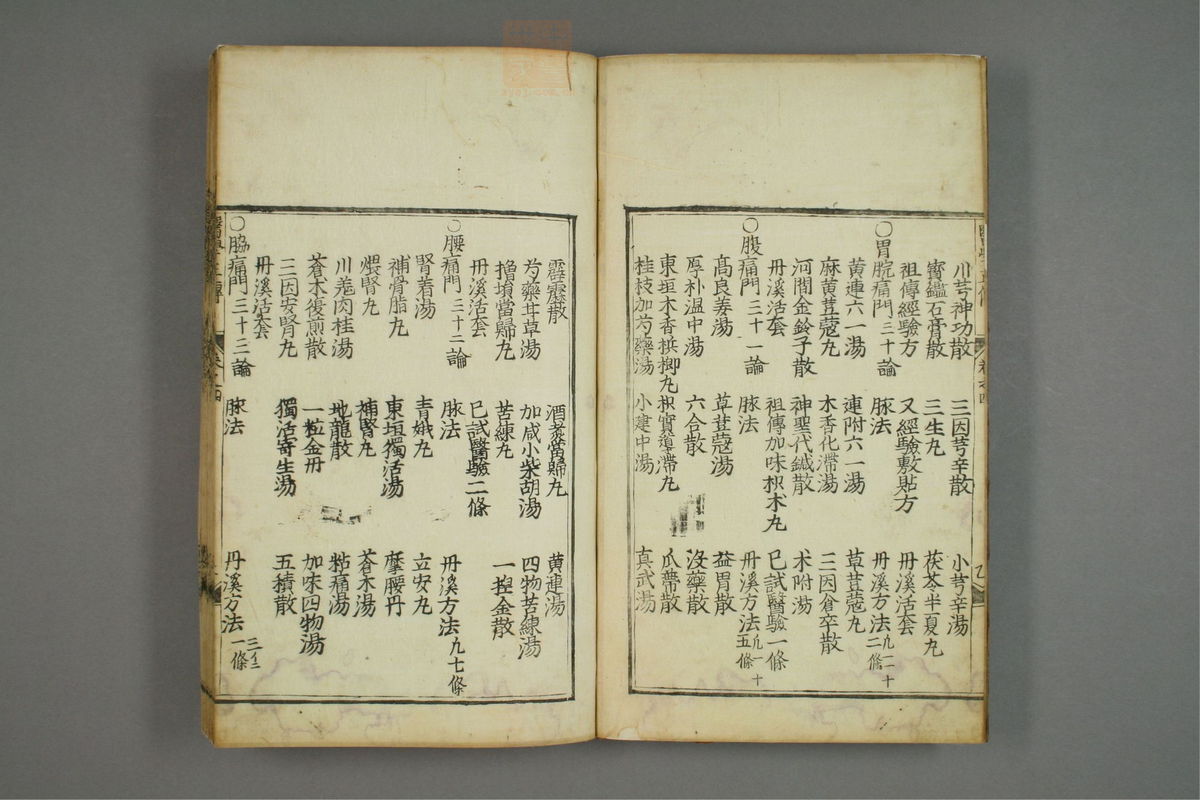 川芎神功散 三因芎辛散 小芎辛湯
寳鑑石膏散 三生丸 茯苓半夏丸
祖傳經驗方 又經驗敷貼方 丹溪活套
○胃脘痛門三十論 脉法 丹溪方法凡一十二條
黄連六一湯 連附六一湯 草荳蔻丸
麻黄荳蔻丸 木香化滯湯 三因倉卒散
河間金鈴子散 神聖代鍼散 术附湯
丹溪活套 祖傳加味枳术丸 已試醫驗一條
○腹痛門三十一論 脉法 丹溪方法凡一十五條
高良姜湯 草荳蔻湯 益胃散
厚朴温中湯 六合散 没藥散
東垣木香檳榔丸 枳實導滯丸 瓜蔕散
桂枝加芍藥湯 小建中湯 真武湯
霹靂散 酒煮當歸丸 黄連湯
芍藥甘草湯 加减小柴胡湯 四物苦練湯
當歸丸 苦練丸 一捏金散
丹溪活套 已試醫驗二條
○腰痛門三十二論 脉法 丹溪方法凡七條
腎着湯 青娥丸 立安丸
補骨脂丸 東垣獨活湯 摩腰丹
煨腎丸 補腎丸 蒼术湯
川芎肉桂湯 地龍散 粘痛湯
蒼术復煎散 一粒金丹 加味四物湯
三因安腎丸 獨活寄生湯 五積散
丹溪活套
○脇痛門三十三論 脉法 丹溪方法一條